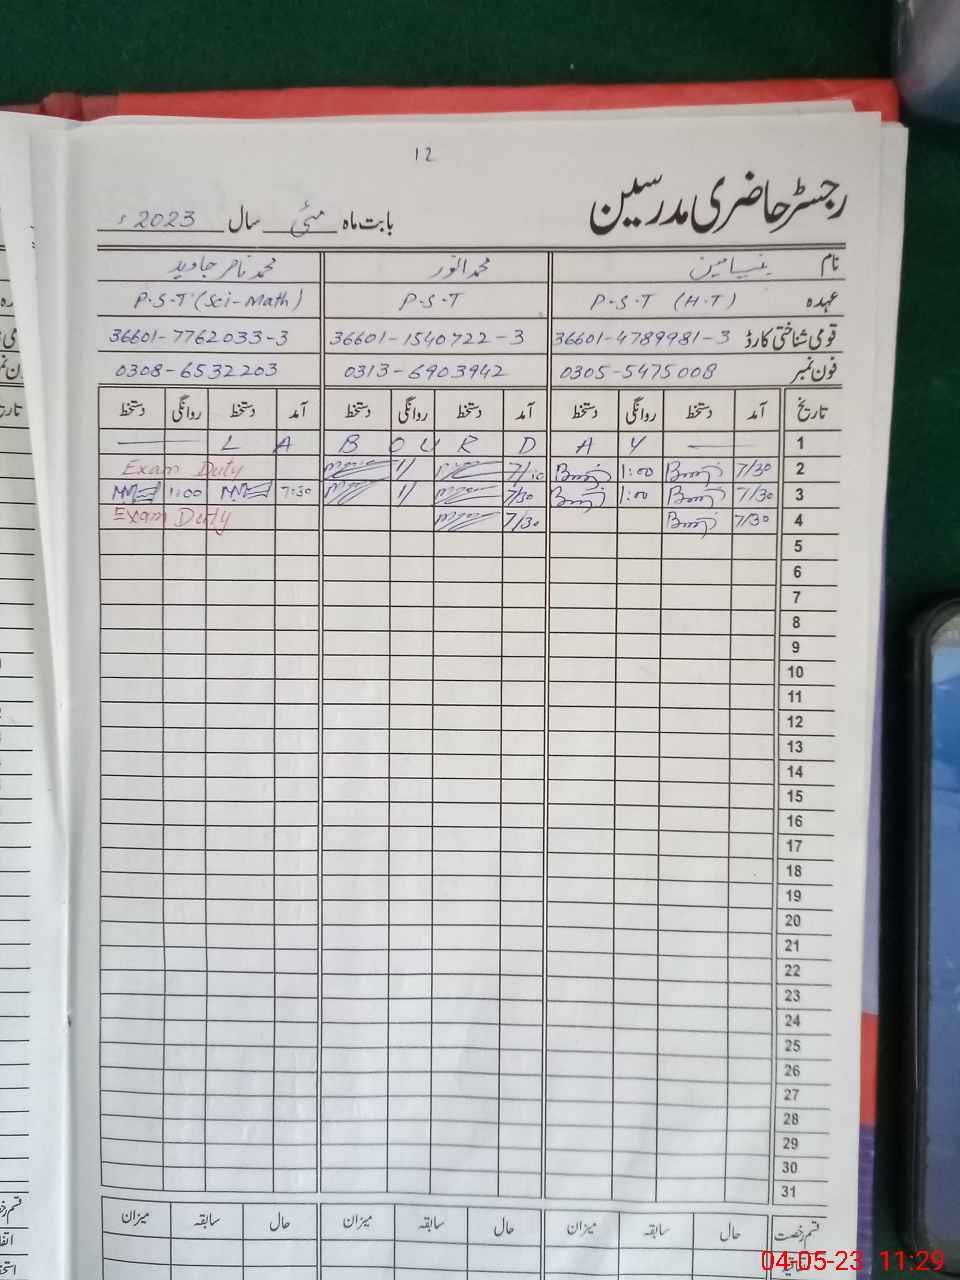 12
رجسٹر حاضری مدرسین
بابت ماہ مئی سال 2023ء
نام بنیامین محمد انور محمد ناصر جاوید
عہدہ P.S.T (H.T) P.S.T P.S.T (Sci-Math)
قومی شناختی کارڈ 36601-4789981-3 36601-1540722-3 36601-7762033-3
فون نمبر 0305-5475008 0313-6903942 0308-6532203
تاریخ آمد دستخط روانگی دستخط آمد دستخط روانگی دستخط آمد دستخط روانگی دستخط
1 LABOURDAY
2 7/30 1:00 Exam Duty
3 7/30 1:00 7/30 7:30 1:00
4 7/30 7/30 Exam Duty
5
6
7
8
9
10
11
12
13
14
15
16
17
18
19
20
21
22
23
24
25
26
27
28
29
30
31
قسم رخصت حال سابقہ میزان حال سابقہ میزان حال سابقہ میزان
04-05-23 11:29